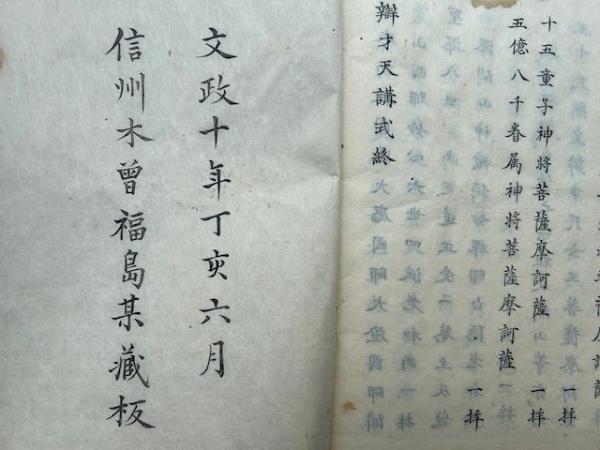 十五童子神将菩薩摩訶薩 一拜
五億八千眷属神将菩薩摩訶薩 一拜
辯才天講式終
文政十年丁亥六月
信州木曾福島某藏板